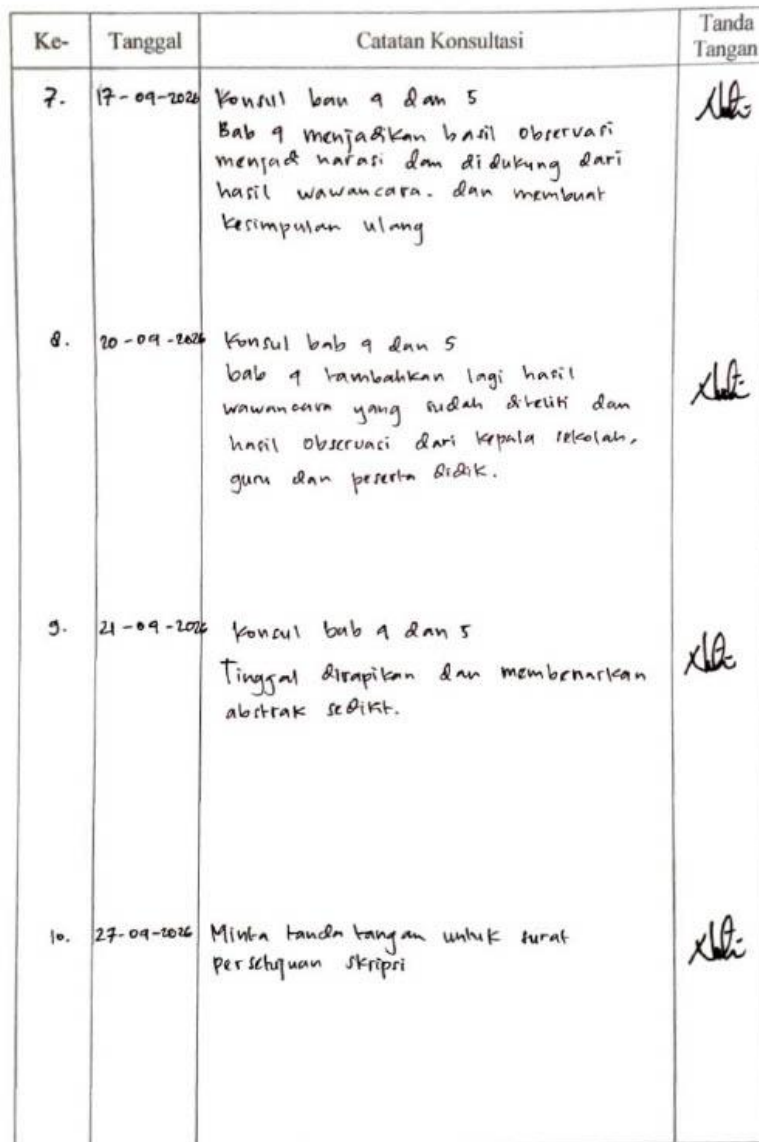 Ke- Tanggal Catatan Konsultasi Tanda Tangan
7. 17-09-2026 Konsul bau 4 dan 5
Bab 4 menjadikan hasil observasi
menjadi narasi dan didukung dari
hasil wawancara. dan membuat
kesimpulan ulang
8. 20-09-2026 Konsul bab 4 dan 5
bab 4 tambahkan lagi hasil
wawancara yang sudah diteliti dan
hasil observasi dari kepala sekolah,
guru dan peserta didik.
9. 21-09-2026 Konsul bab 4 dan 5
Tinggal dirapikan dan membenarkan
abstrak sedikit.
10. 27-09-2026 Minta tanda tangan untuk surat
persetujuan skripsi